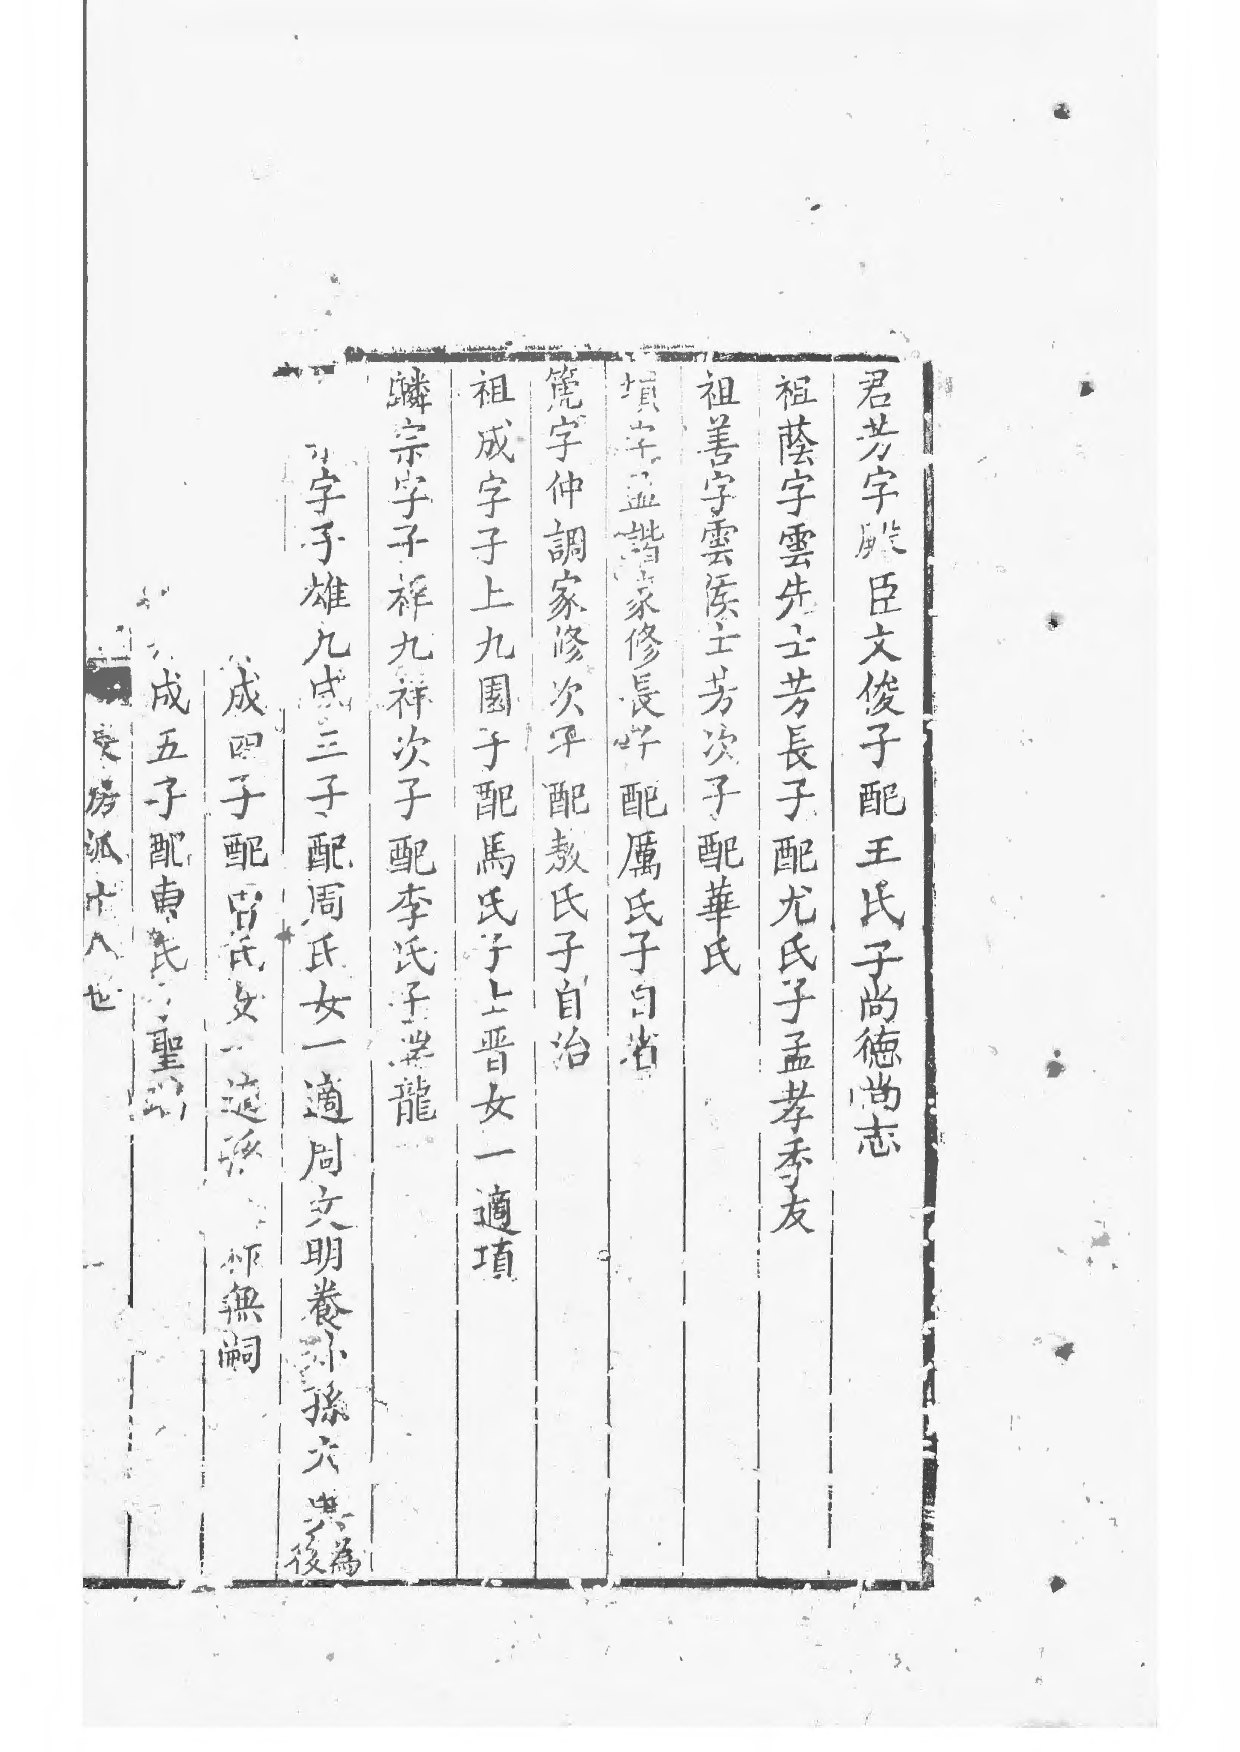 君芳字殿臣文俊子配王氏子尚德尚志
祖蔭字雲先士芳長子配尤氏子孟孝季友
祖善字雲侯士芳次子配華氏
塤字孟諧家修長子配厲氏子自省
箎字仲調家修次子配敖氏子自治
祖成字子上九園子配馬氏子上晋女一適項
麟宗字子祥九祥次子配李氏子瑞龍
字子雄九成三子配周氏女一適周文明養孫六為後
成四子配曾氏女一適孫無嗣
成五子配東氏聖
房派十八世